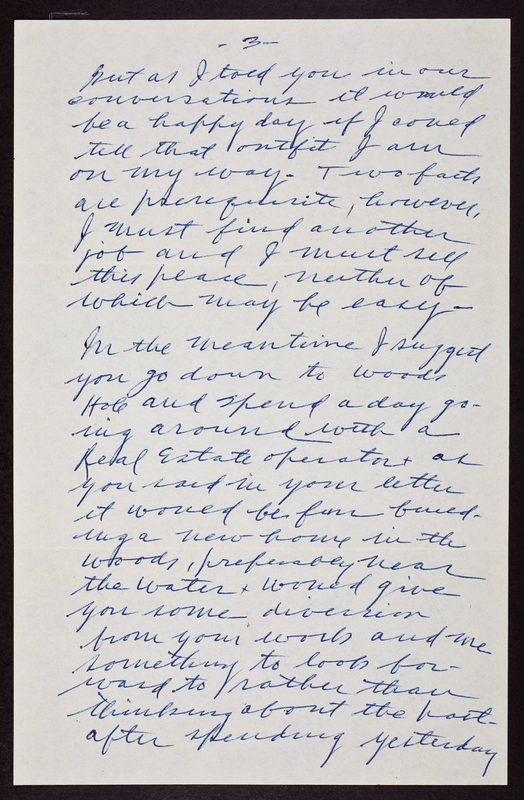 - 3 -
But as I told you in our
conversations it would
be a happy day if I could
tell that outfit I am
on my way - Two facts
are prerequisite, however,
I must find another
job and I must sell
this place, neither of
which may be easy -
In the meantime I suggest
you go down to Woods
Hole and spend a day go-
ing around with a
Real Estate operator + as
you said in your letter
it would be fun build-
ing a new home in the
woods, preferably near
the water + would give
you some diversion
from your work and me
something to look for-
ward to rather than
thinking about the past -
after spending yesterday